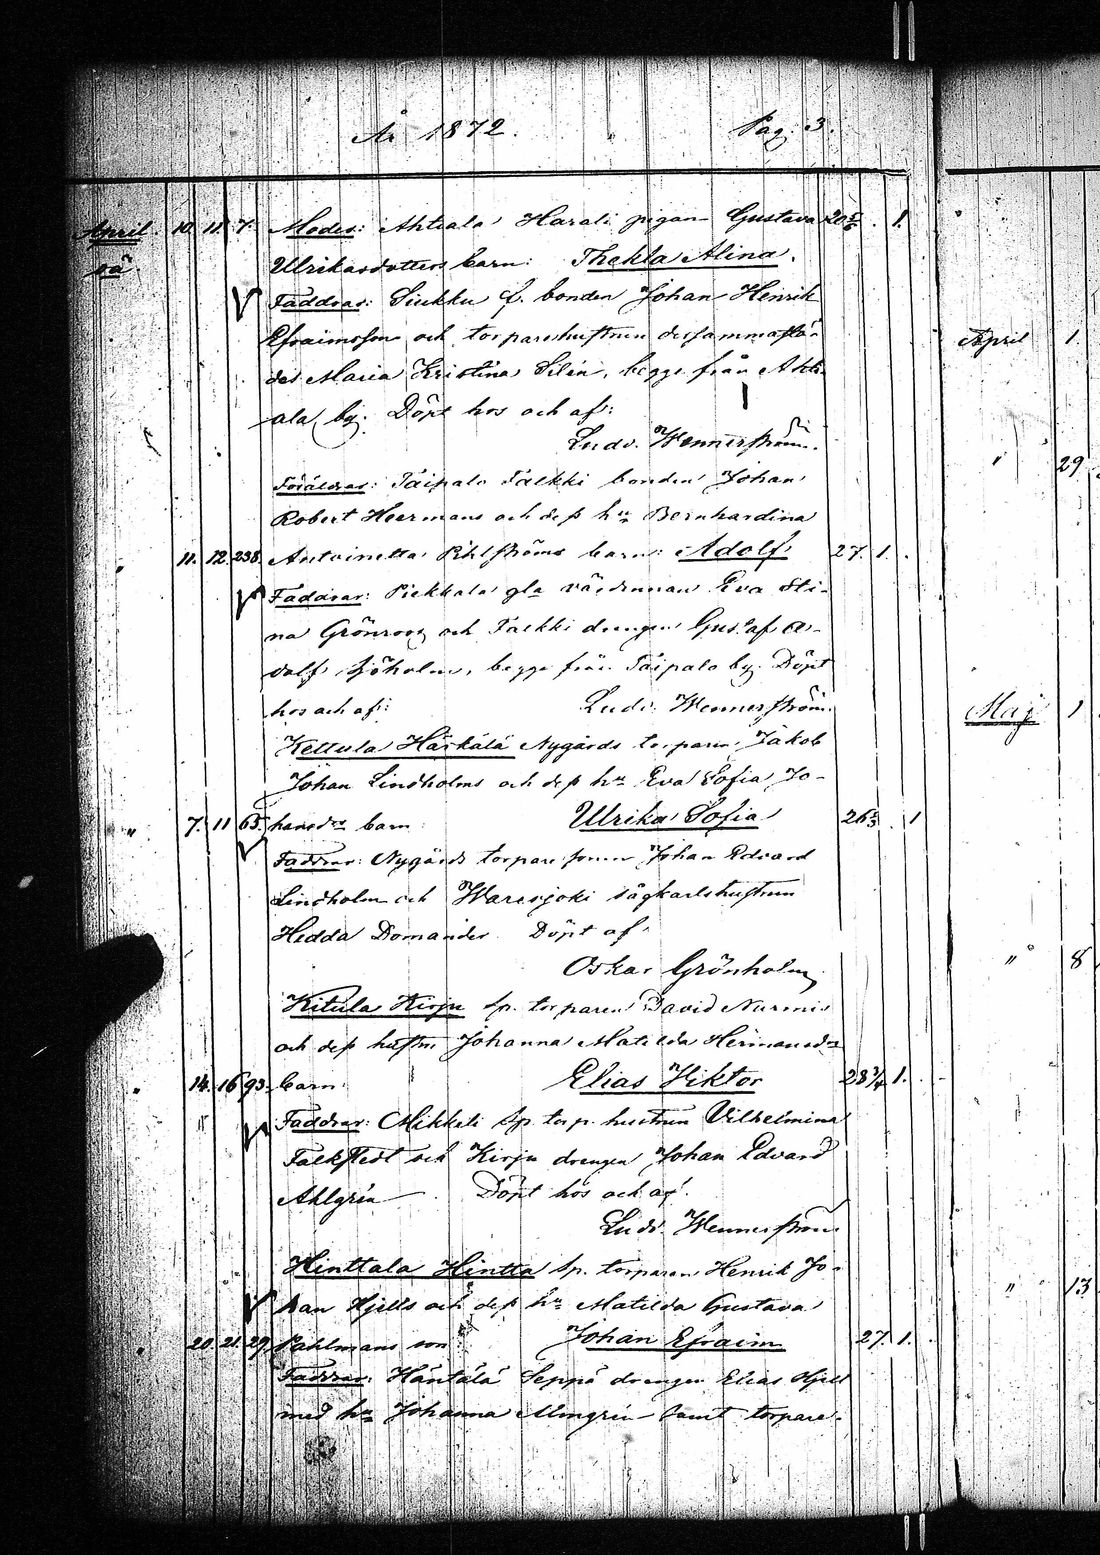 År 1872. Pag. 3.
April 10. 11. 7. Moder: Ahtiala Harali pigan Gustava 20 5/6 . 1.
Ulrikasdotters barn: Thekla Alina.
Faddrar: Siukku f. bonden Johan Henrik
Efraimsson och torparehustrun dersammastä-
des Maria Kristina Silén, begge från Ahti-
ala by. Döpt hos och af:
Ludv. Wennerström.
Föräldrar: Taipale Talkki bonden Johan
Robert Heermans och dess hu Bernhardina
11. 12. 238. Antoinetta Pihlströms barn: Adolf 27. 1.
Faddrar: Piekkala gla värdinnan Eva Sti-
na Grönroos och Talkki drengen Gustaf A-
dolf Sjöholm, begge från Taipale by. Döpt
hos och af: Ludv. Wennerström.
Kettula Härkälä Nygårds torparen Jakob
Johan Lindholms och dess hu Eva Sofia Jo-
" 7. 11 65. hansdr barn: Ulrika Sofia 26 2/3 . 1
Faddrar: Nygårds torpare sonen Johan Edvard
Lindholm och Waresjoki sågkarlshustrun
Hedda Domander. Döpt af:
Oskar Grönholm
Kitula Kirju sp. torparen David Nurmis
och dess hustru Johanna Matilda Hermansdr
" 14. 16 93. barn: Elias Viktor 28 3/4 1.
Faddrar: Mikkeli sp. torp. hustrun Vilhelmina
Falkstedt och Kirju drengen Johan Edvard
Ahlgrén. Döpt hos och af:
Ludv. Wennerström
Hinttala Hintta sp. torparen Henrik Jo-
han Hjells och dess hu Matilda Gustava
" 20. 21. 29. Pahlmans son: Johan Efraim 27. 1.
Faddrar: Häntälä Seppä drengen Elias Hjell
med hu Johanna Almgrén samt torpare-
April 1.
" 29.
Maj 1
" 8
" 13